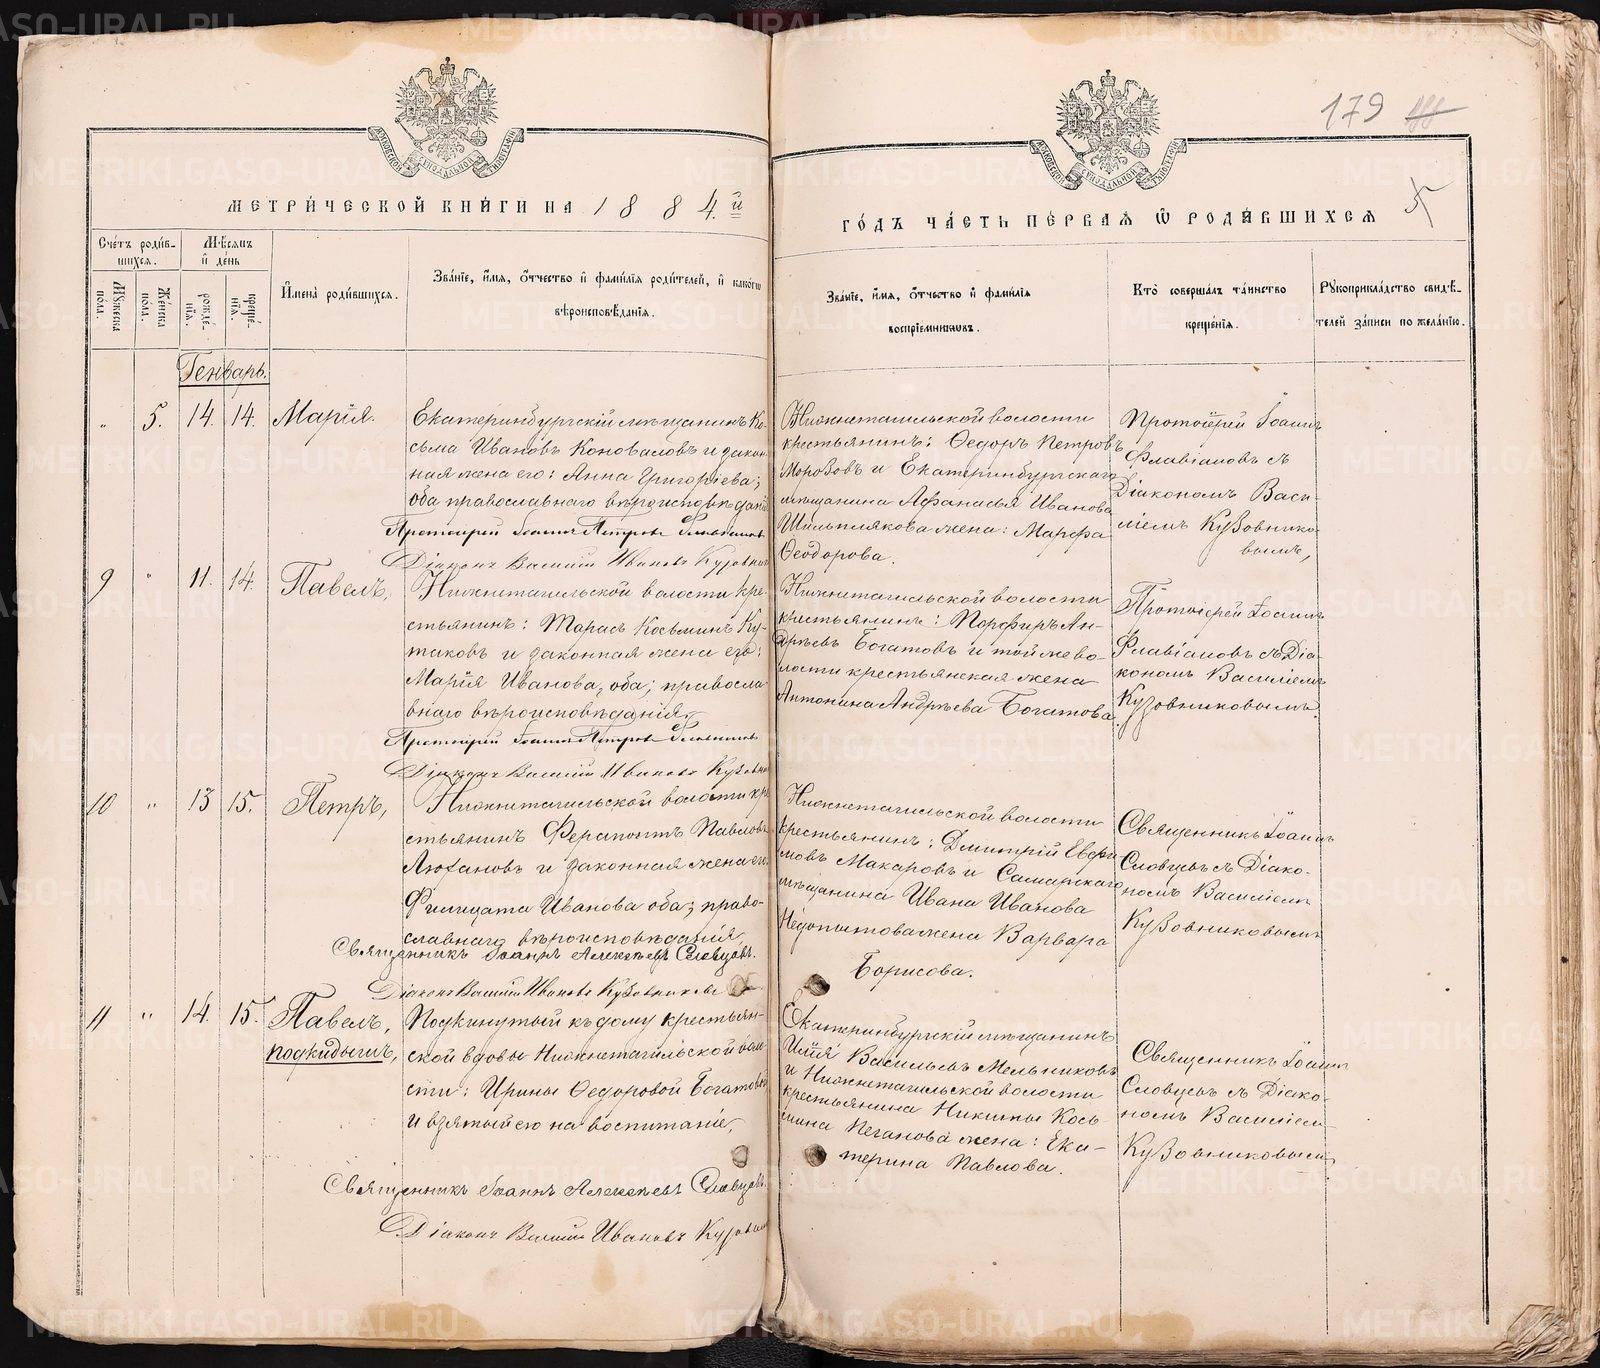 179
МЕТРИЧЕСКОЙ КНИГИ НА 1884.й
ГОДЪ ЧАСТЬ ПЕРВАЯ Ѿ РОДИВШИХСЯ 5
Счетъ родив-
шихся.
Мужеска
пола.
Женска
пола.
Мѣсяцъ
и день
рожде-
нія.
креще-
нія.
Имена родившихся.
Званіе, имя, отчество и фамилія родителей, и какого
вѣроисповѣданія.
Званіе, имя, отчество и фамилія
воспріемниковъ.
Кто совершалъ таинство
крещенія.
Рукоприкладство свидѣ-
телей записи по желанію.
Генварь.
" 5. 14. 14. Марія.
Екатеринбургскій мѣщанинъ Ко-
сьма Ивановъ Коноваловъ и закон-
ная жена его: Анна Григоріева;
оба православнаго вѣроисповѣданія
Протоіерей Іоаннъ Петровъ Флавіановъ
Діаконъ Василій Ивановъ Кузовник
Нижнетагильской волости
крестьянинъ: Ѳедоръ Петровъ
Морозовъ и Екатеринбургскаго
мѣщанина Афанасья Иванова
Шильплякова жена: Марфа
Ѳеодорова.
Протоіерей Іоаннъ
Флавіановъ съ
Діакономъ Васи-
ліемъ Кузовнико-
вымъ,
9 " 11. 14. Павелъ,
Нижнетагильской волости кре-
стьянинъ: Тарасъ Косьминъ Ку-
таковъ и законная жена его:
Марія Иванова, оба; правосла-
внаго вѣроисповѣданія,
Протоіерей Іоаннъ Петровъ Флавіановъ
Діаконъ Василій Ивановъ Кузовник
Нижнетагильской волости
крестьянинъ: Порфиръ Ан-
дреевъ Богатовъ и той же во-
лости крестьянская жена
Антонина Андреева Богатова.
Протоіерей Іоаннъ
Флавіановъ съ Діа-
кономъ Василіемъ
Кузовниковымъ.
10 " 13 15. Петръ,
Нижнетагильской волости кре-
стьянинъ Ферапонтъ Павловъ
Люхановъ и законная жена его
Филицата Иванова оба; право-
славнаго вѣроисповѣданія,
Священникъ Іоаннъ Алексѣевъ Словцовъ.
Діаконъ Василій Ивановъ Кузовниковъ
Нижнетагильской волости
крестьянинъ: Дмитрій Евфи-
мовъ Макаровъ и Самарскаго
мѣщанина Ивана Иванова
Недопытова жена Варвара
Борисова.
Священникъ Іоаннъ
Словцовъ съ Діако-
номъ Василіемъ
Кузовниковымъ
11 " 14. 15. Павелъ,
подкидышъ,
Подкинутый къ дому крестьян-
ской вдовы Нижнетагильской воло-
сти: Ирины Ѳедоровой Богатовой
и взятый ею на воспитаніе,
Священникъ Іоаннъ Алексѣевъ Словцовъ.
Діаконъ Василій Ивановъ Кузовник
Екатеринбургскій мѣщанинъ
Илія Васильевъ Мельниковъ
и Нижнетагильской волости
крестьянина Никиты Кось-
мина Печанова жена: Ека-
терина Павлова.
Священникъ Іоаннъ
Словцовъ съ Діако-
номъ Василіем
Кузовниковым,
METRIKI.GASO-URAL.RU